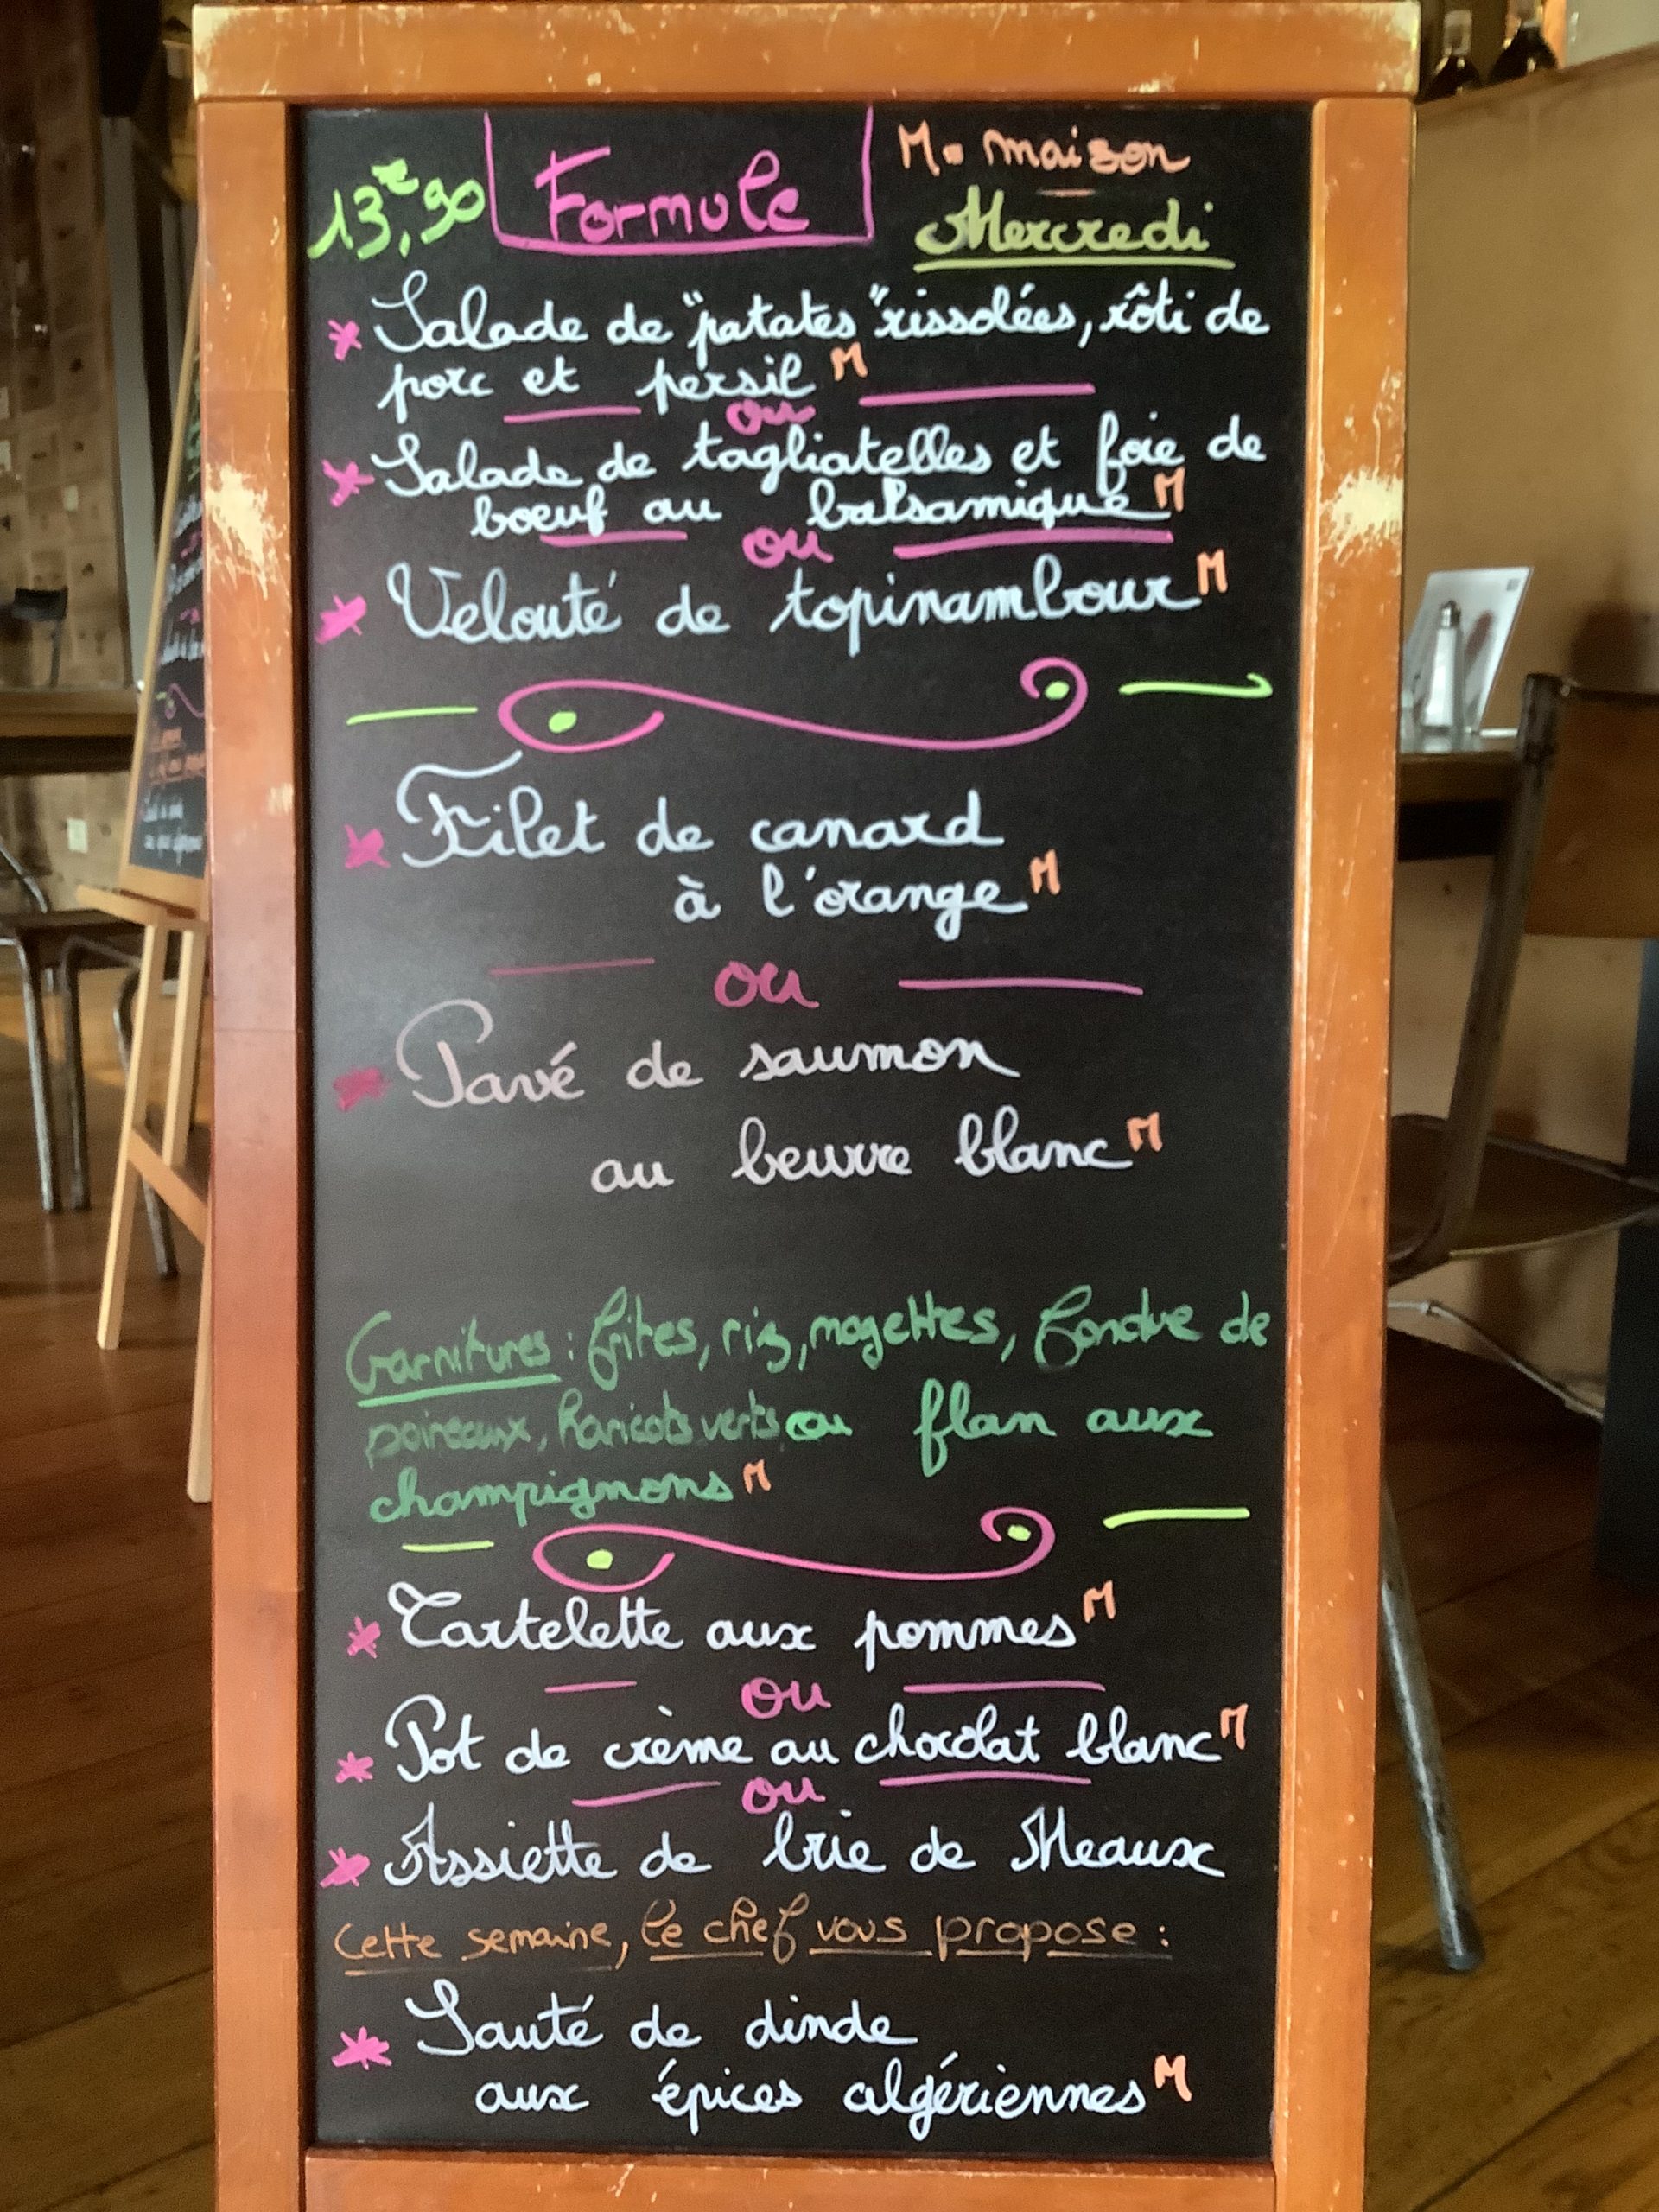 13€,90 Formule M = maison
Mercredi
* Salade de "patates" rissolées, rôti de
porc et persil M
ou
* Salade de tagliatelles et foie de
boeuf au balsamique M
ou
* Velouté de topinambour M
* Filet de canard
à l'orange M
ou
* Pavé de saumon
au beurre blanc M
Garnitures : frites, riz, mogettes, fondue de
poireaux, haricots verts ou flan aux
champignons M
* Tartelette aux pommes M
ou
* Pot de crème au chocolat blanc M
ou
* Assiette de brie de Meaux
Cette semaine, le chef vous propose :
* Sauté de dinde
aux épices algériennes M